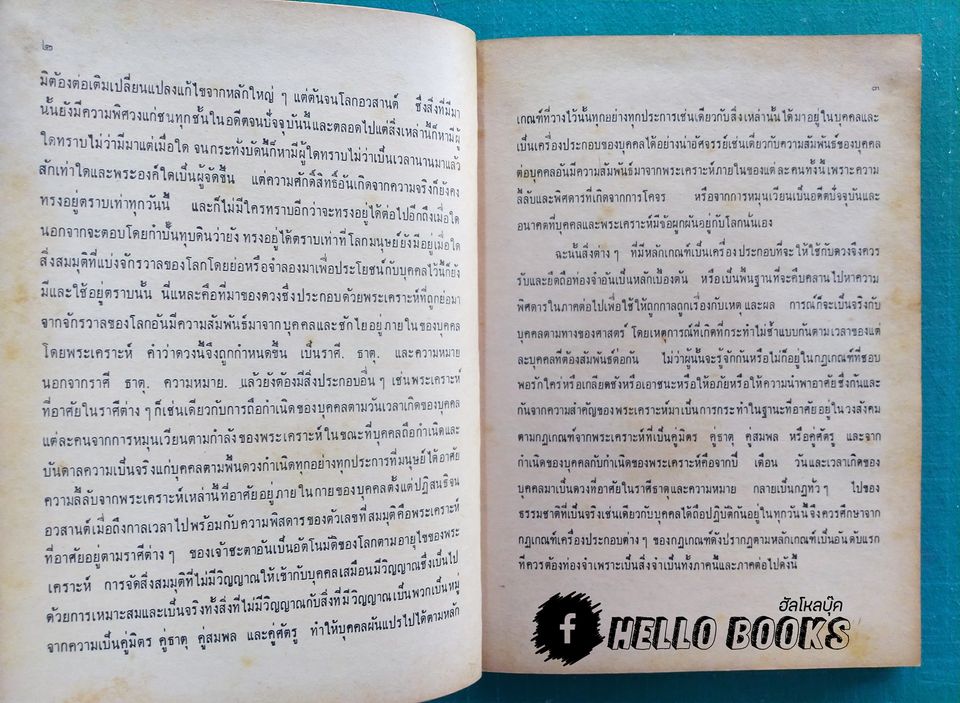 ๒
มิต้องต่อเติมเปลี่ยนแปลงแก้ไขจากหลักใหญ่ ๆ แต่ต้นจนโลกอวสานต์ ซึ่งสิ่งที่มีมา
นั้นยังมีความพิศวงแก่ชนทุกชั้นในอดีตจนปัจจุบันนี้และตลอดไปแต่สิ่งเหล่านี้ก็หามีผู้
ใดทราบไม่ว่ามีมาแต่เมื่อใด จนกระทั่งบัดนี้ก็หามีผู้ใดทราบไม่ว่าเป็นเวลานานมาแล้ว
สักเท่าใดและพระองค์ใดเป็นผู้จัดขึ้น แต่ความศักดิ์สิทธิ์อันเกิดจากความจริงก็ยังคง
ทรงอยู่ตราบเท่าทุกวันนี้ และก็ไม่มีใครทราบอีกว่าจะทรงอยู่ได้ต่อไปอีกถึงเมื่อใด
นอกจากจะตอบโดยกำปั้นทุบดินว่ายัง ทรงอยู่ได้ตราบเท่าที่โลกมนุษย์ยังมีอยู่เมื่อใด
สิ่งสมมุติที่แบ่งจักรวาลของโลกโดยย่อหรือจำลองมาเพื่อประโยชน์กับบุคคลไว้นี้ก็ยัง
มีและใช้อยู่ตราบนั้น นี่แหละคือที่มาของดวงซึ่งประกอบด้วยพระเคราะห์ที่ถูกย่อมา
จากจักรวาลของโลกอันมีความสัมพันธ์มาจากบุคคลและชักใยอยู่ภายในของบุคคล
โดยพระเคราะห์ คำว่าดวงนี้จึงถูกกำหนดขึ้น เป็นราศี. ธาตุ. และความหมาย
นอกจากราศี ธาตุ. ความหมาย. แล้วยังต้องมีสิ่งประกอบอื่น ๆ เช่นพระเคราะห์
ที่อาศัยในราศีต่าง ๆ ก็เช่นเดียวกับการถือกำเนิดของบุคคลตามวันเวลาเกิดของบุคคล
แต่ละคนจากการหมุนเวียนตามกำลังของพระเคราะห์ในขณะที่บุคคลถือกำเนิดและ
บันดาลความเป็นจริงแก่บุคคลตามพื้นดวงกำเนิดทุกอย่างทุกประการที่มนุษย์ได้อาศัย
ความลี้ลับจากพระเคราะห์เหล่านี้ที่อาศัยอยู่ภายในกายของบุคคลตั้งแต่ปฏิสนธิจน
อวสานต์เมื่อถึงกาลเวลาไปพร้อมกับความพิสดารของตัวเลขที่สมมุติคือพระเคราะห์
ที่อาศัยอยู่ตามราศีต่าง ๆ ของเจ้าชะตาอันเป็นอัตโนมัติของโลกตามอายุไขของพระ
เคราะห์ การจัดสิ่งสมมุติที่ไม่มีวิญญาณให้เข้ากับบุคคลเสมือนมีวิญญาณซึ่งเป็นไป
ด้วยการเหมาะสมและเป็นจริงทั้งสิ่งที่ไม่มีวิญญาณกับสิ่งที่มีวิญญาณเป็นพวกเป็นหมู่
จากความเป็นคู่มิตร คู่ธาตุ คู่สมพล และคู่ศัตรู ทำให้บุคคลผันแปรไปได้ตามหลัก
๓
เกณฑ์ที่วางไว้นั้นทุกอย่างทุกประการเช่นเดียวกับสิ่งเหล่านั้นได้มาอยู่ในบุคคลและ
เป็นเครื่องประกอบของบุคคลได้อย่างน่าอัศจรรย์เช่นเดียวกับความสัมพันธ์ของบุคคล
ต่อบุคคลอันมีความสัมพันธ์มาจากพระเคราะห์ภายในของแต่ละคนทั้งนี้เพราะความ
ลี้ลับและพิศดารที่เกิดจากการโคจร หรือจากการหมุนเวียนเป็นอดีตปัจจุบันและ
อนาคตที่บุคคลและพระเคราะห์มีข้อผูกพันอยู่กับโลกนั่นเอง
ฉะนั้นสิ่งต่าง ๆ ที่มีหลักเกณฑ์เป็นเครื่องประกอบที่จะให้ใช้กับดวงจึงควร
รับและยึดถือท่องจำอันเป็นหลักเบื้องต้น หรือเป็นพื้นฐานที่จะคืบคลานไปหาความ
พิศดารในภาคต่อไปเพื่อใช้ให้ถูกกาลถูกเรื่องกับเหตุและผล การณ์ก็จะเป็นจริงกับ
บุคคลตามทางของศาสตร์ โดยเหตุการณ์ที่เกิดที่กระทำไม่ซ้ำแบบกันตามเวลาของแต่
ละบุคคลที่ต้องสัมพันธ์ต่อกัน ไม่ว่าผู้นั้นจะรู้จักกันหรือไม่ก็อยู่ในกฎเกณฑ์ที่ชอบ
พอรักใคร่หรือเกลียดชังหรือเอาชนะหรือให้อภัยหรือให้ความนำพาอาศัยซึ่งกันและ
กันจากความสำคัญของพระเคราะห์มาเป็นการกระทำในฐานะที่อาศัยอยู่ในวงสังคม
ตามกฎเกณฑ์จากพระเคราะห์ที่เป็นคู่มิตร คู่ธาตุ คู่สมพล หรือคู่ศัตรู และจาก
กำเนิดของบุคคลกับกำเนิดของพระเคราะห์คือจากปี เดือน วันและเวลาเกิดของ
บุคคลมาเป็นดวงที่อาศัยในราศีธาตุและความหมาย กลายเป็นกฎทั่ว ๆ ไปของ
ธรรมชาติที่เป็นจริงเช่นเดียวกับบุคคลได้ถือปฏิบัติกันอยู่ในทุกวันนี้จึงควรศึกษาจาก
กฎเกณฑ์เครื่องประกอบต่าง ๆ ของกฎเกณฑ์ดังปรากฏตามหลักเกณฑ์เป็นอันดับแรก
ที่ควรต้องท่องจำเพราะเป็นสิ่งจำเป็นทั้งภาคนี้และภาคต่อไปดังนี้
ฮัลโหลบุ๊ค
f HELLO BOOKS